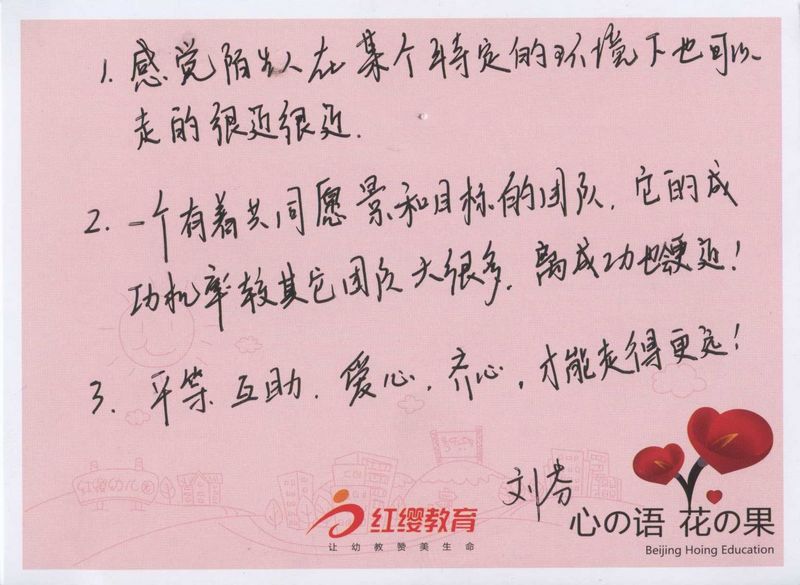 1. 感觉陌生人在某个特定的环境下也可以
走的很近很近.
2. 一个有着共同愿景和目标的团队, 它的成
功机率较其它团队大很多, 离成功也会更近!
3. 平等 互助, 爱心, 齐心, 才能走得更远!
刘芬
红缨幼儿园
红缨教育
让幼教赞美生命
心の语 花の果
Beijing Hoing Education